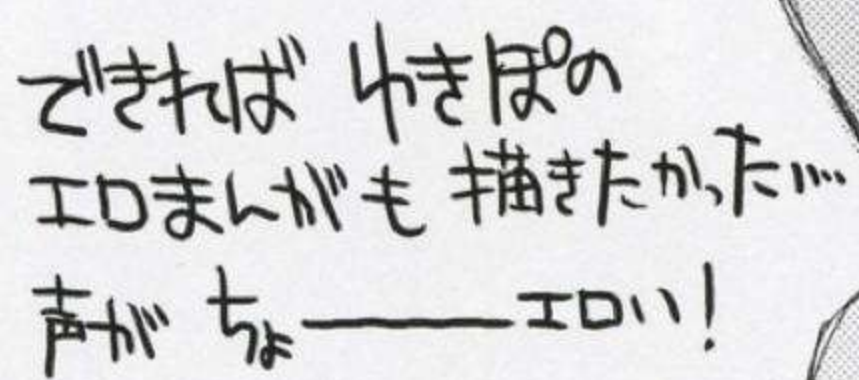 できれば ゆきぽの
エロまんがも 描きたかった…
声が ちょ――――エロい!